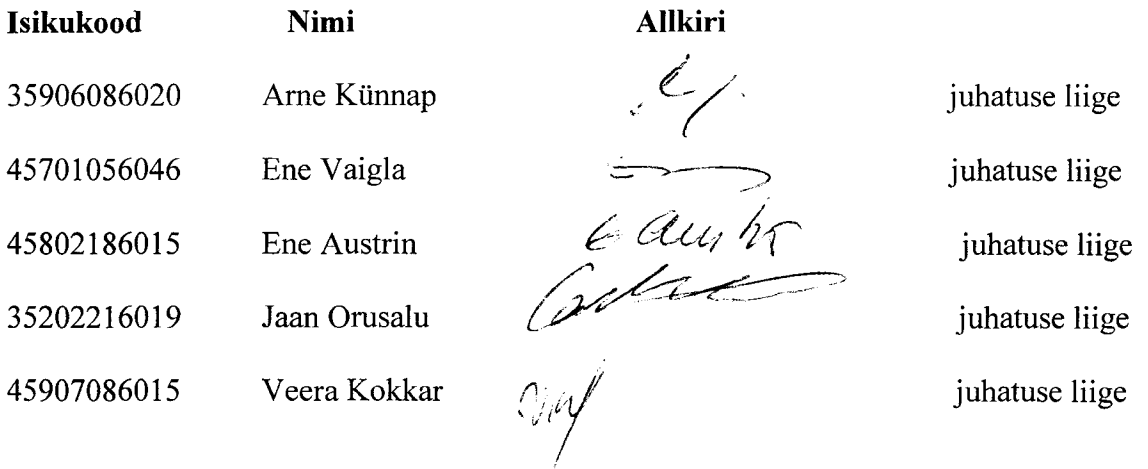 Isikukood Nimi Allkiri
35906086020 Arne Künnap juhatuse liige
45701056046 Ene Vaigla juhatuse liige
45802186015 Ene Austrin juhatuse liige
35202216019 Jaan Orusalu juhatuse liige
45907086015 Veera Kokkar juhatuse liige